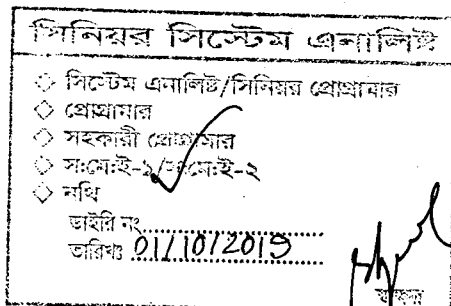 সিনিয়র সিস্টেম এনালিষ্ট
সিস্টেম এনালিষ্ট/সিনিয়র প্রোগ্রামার
প্রোগ্রামার
সহকারী প্রোগ্রামার
সঃমেঃই-১/সঃমেঃই-২
নথি
ডাইরি নং
তারিখঃ 01/10/2019
স্বাক্ষর